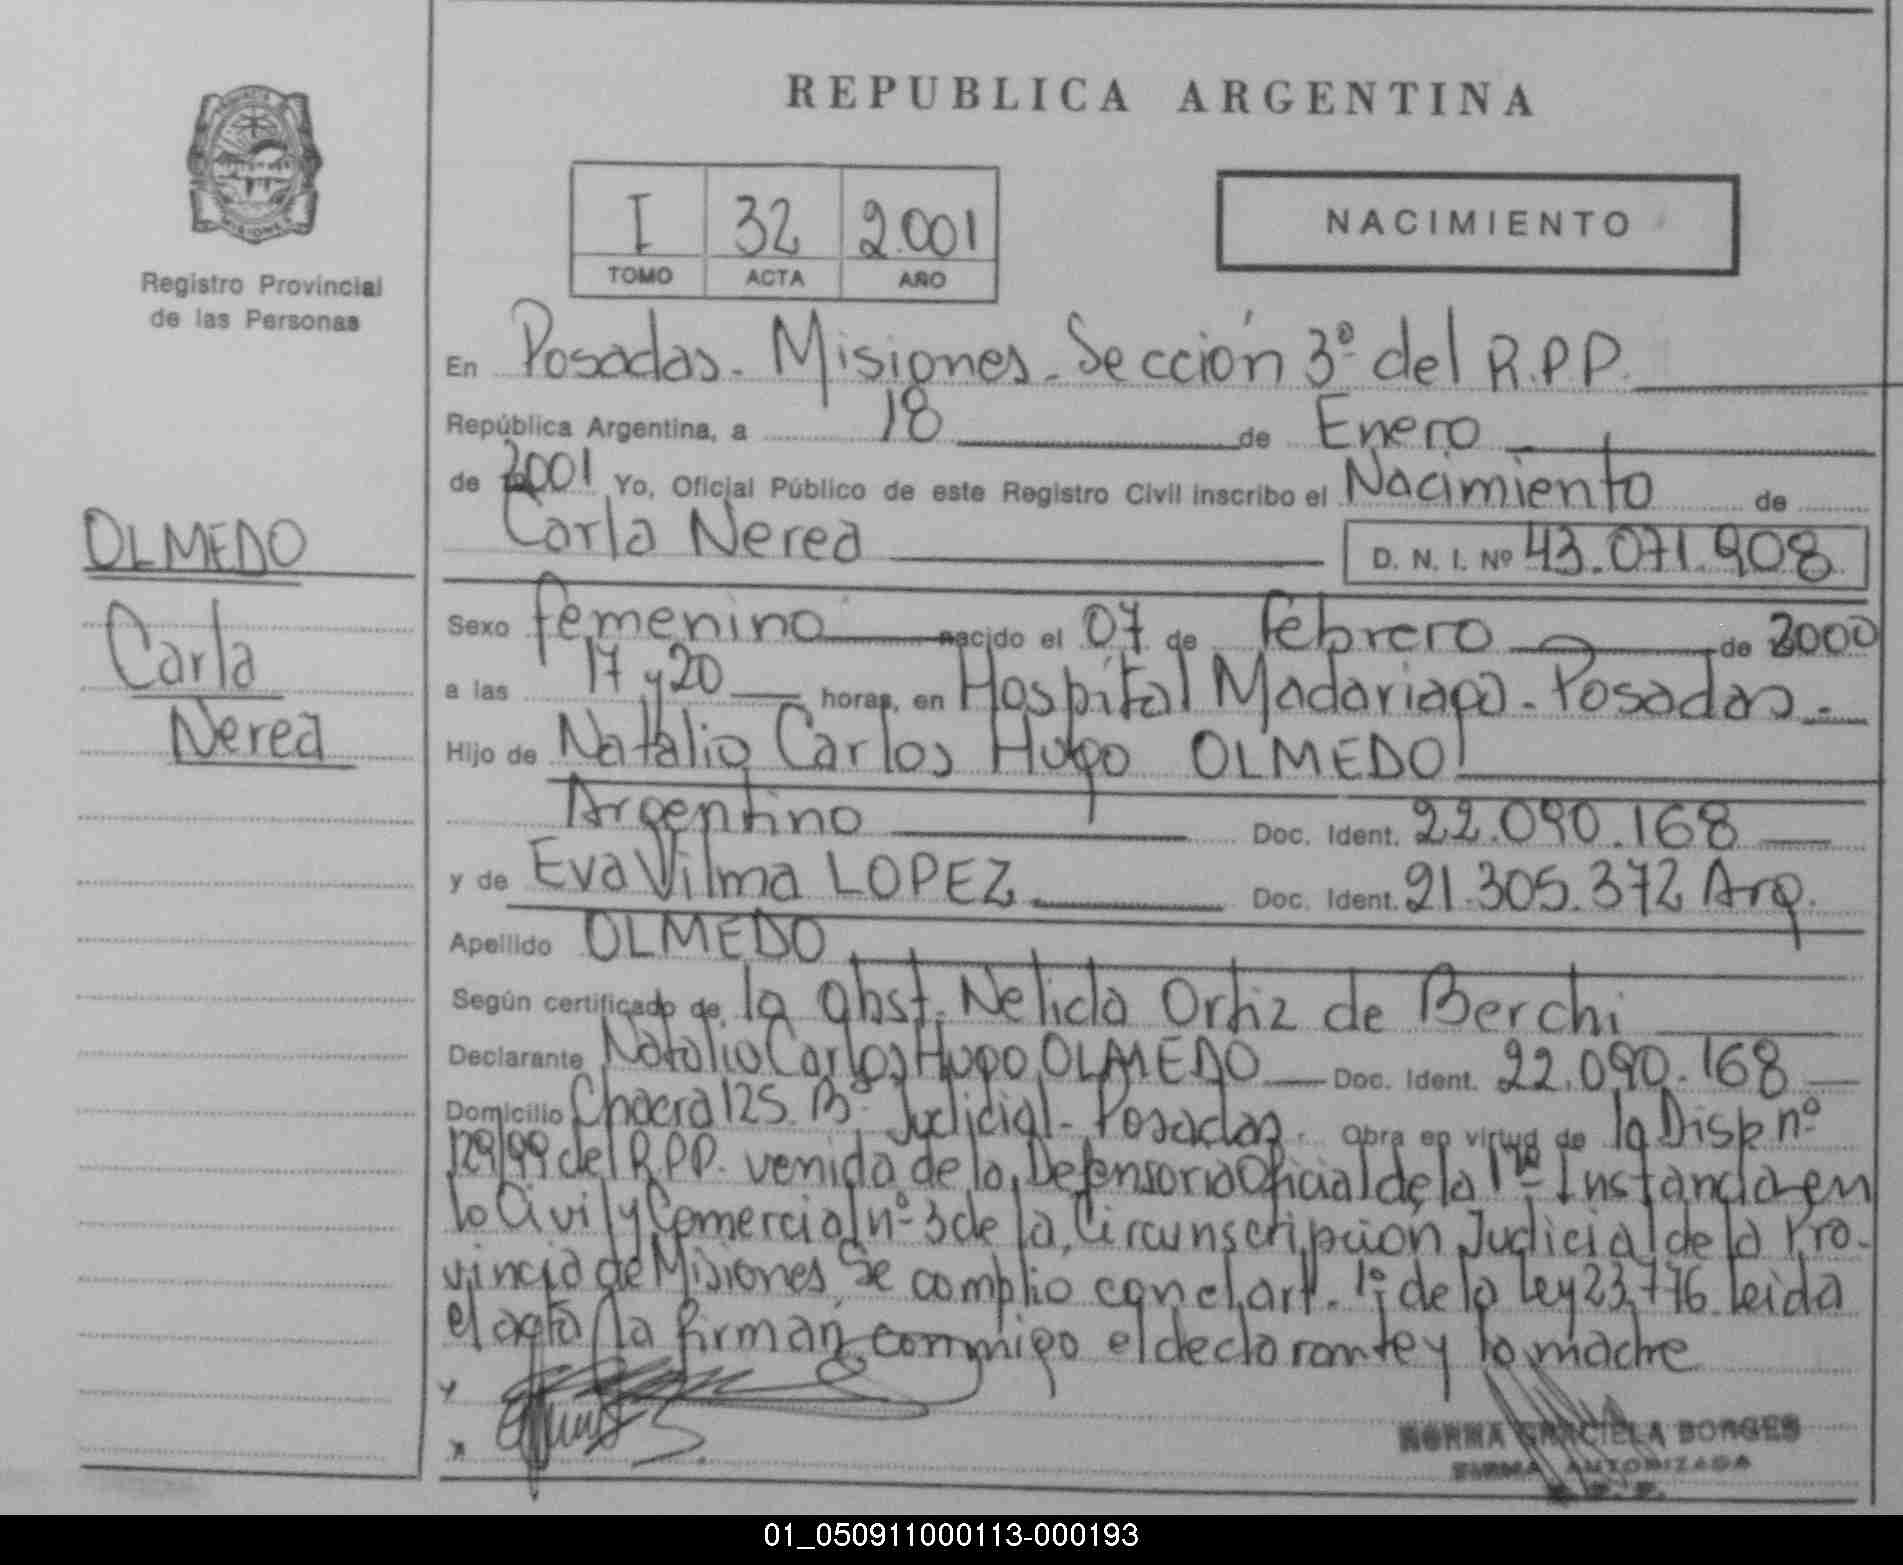 REPUBLICA ARGENTINA
I 32 2.001
TOMO ACTA AÑO
NACIMIENTO
Registro Provincial
de las Personas
En Posadas. Misiones. Sección 3º del R.P.P.
República Argentina, a 18 de Enero
de 2001 Yo, Oficial Público de este Registro Civil inscribo el Nacimiento de
Carla Nerea D. N. I. Nº 43.071.908
OLMEDO
Carla
Nerea
Sexo femenino nacido el 07 de febrero de 2000
a las 17 y 20 horas, en Hospital Madariaga - Posadas.-
Hijo de Natalio Carlos Hugo OLMEDO
Argentino Doc. Ident. 22.090.168
y de Eva Vilma LOPEZ Doc. Ident. 21.305.372 Arg.
Apellido OLMEDO
Según certificado de la obst. Nelida Ortiz de Berchi
Declarante Natalio Carlos Hugo OLMEDO Doc. Ident. 22.090.168
Domicilio Chacra 125. Bº Judicial - Posadas. Obra en virtud de la Disp nº
129/99 del R.P.P. venida de la Defensoria Oficial de la 1ra Instancia en
lo Civil y Comercial nº 3 de la Circunscripcion Judicial de la Pro-
vincia de Misiones. Se complio con el art. 1º de la Ley 23.776 leida
el acta la firman conmigo el declarante y la madre
NORMA GRACIELA BORGES
FIRMA AUTORIZADA
01_050911000113-000193